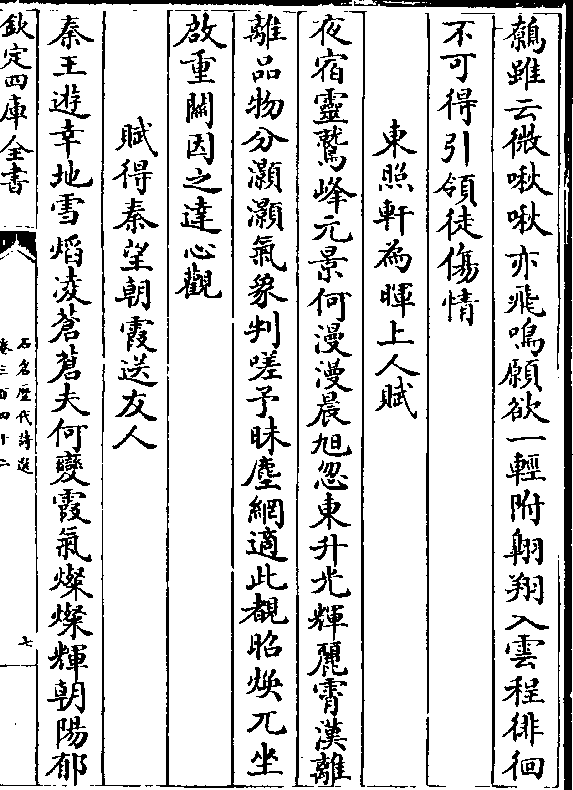 鷯雖云微啾啾亦飛鳴願欲一輕附翺翔入雲程徘徊
不可得引領徒傷情
東照軒為暉上人賦
夜宿靈鷲峰元景何漫漫晨旭忽東升光輝麗霄漢離
離品物分灝灝氣象判嗟予昧塵網適此覩昭煥兀坐
啟重關因之達心觀
賦得秦望朝霞送友人
秦王遊幸地雪熖凌蒼蒼夫何變霞氣燦燦輝朝陽郁
欽定四庫全書
石倉歷代詩選
卷三百四十二
七